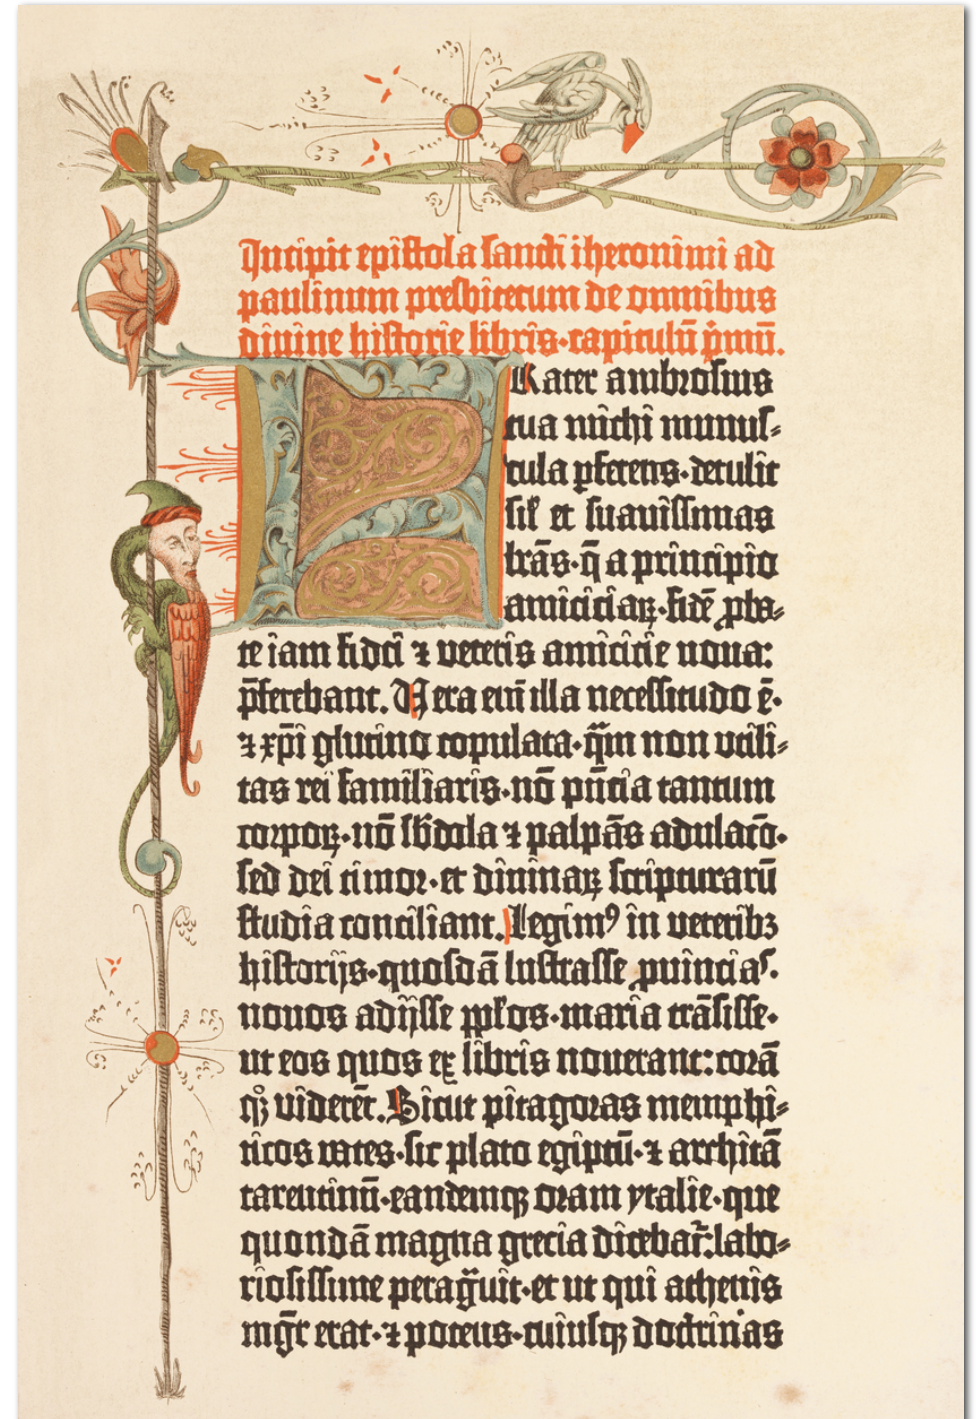 Incipit epistola sancti iheronimi ad
paulinum presbiterum de omnibus
divine historie libris·capitulū p̓mū.
FRater ambrosius
tua michi munus-
cula pferens·detulit
sil̓ et suavissimas
lr̄as·q̄ a principio
amiciciaꝝ·fidē ꝓba-
te iam fidei ⁊ veteris amicicie nova:
p̄ferebant. Vera em̄ illa necessitudo ē·
⁊ xp̄i glutino copulata·q̄m non utili-
tas rei familiaris·nō pn̄tia tantum
corpoꝝ·nō sb̄dola ⁊ palpās adulac̄o·
sed dei timor·et divinaꝝ scripturarū
studia conciliant. Legim⁹ in veteribꝫ
historijs·quosdā lustrasse ꝓuincias·
novos adijsse pp̄los·maria trāsisse·
ut eos quos ex libris noverant: corā
qꝫ viderēt. Sicut pitagoras memphi-
ticos vates·sic plato egiptū·⁊ architā
tarentinū·eandemqꝫ oram ytalie·que
quondā magna grecia dicebat̄: labo-
riosissime peragr̄vit·et ut qui athenis
mgr̄ erat·⁊ potens·cuiusqꝫ doctrinas